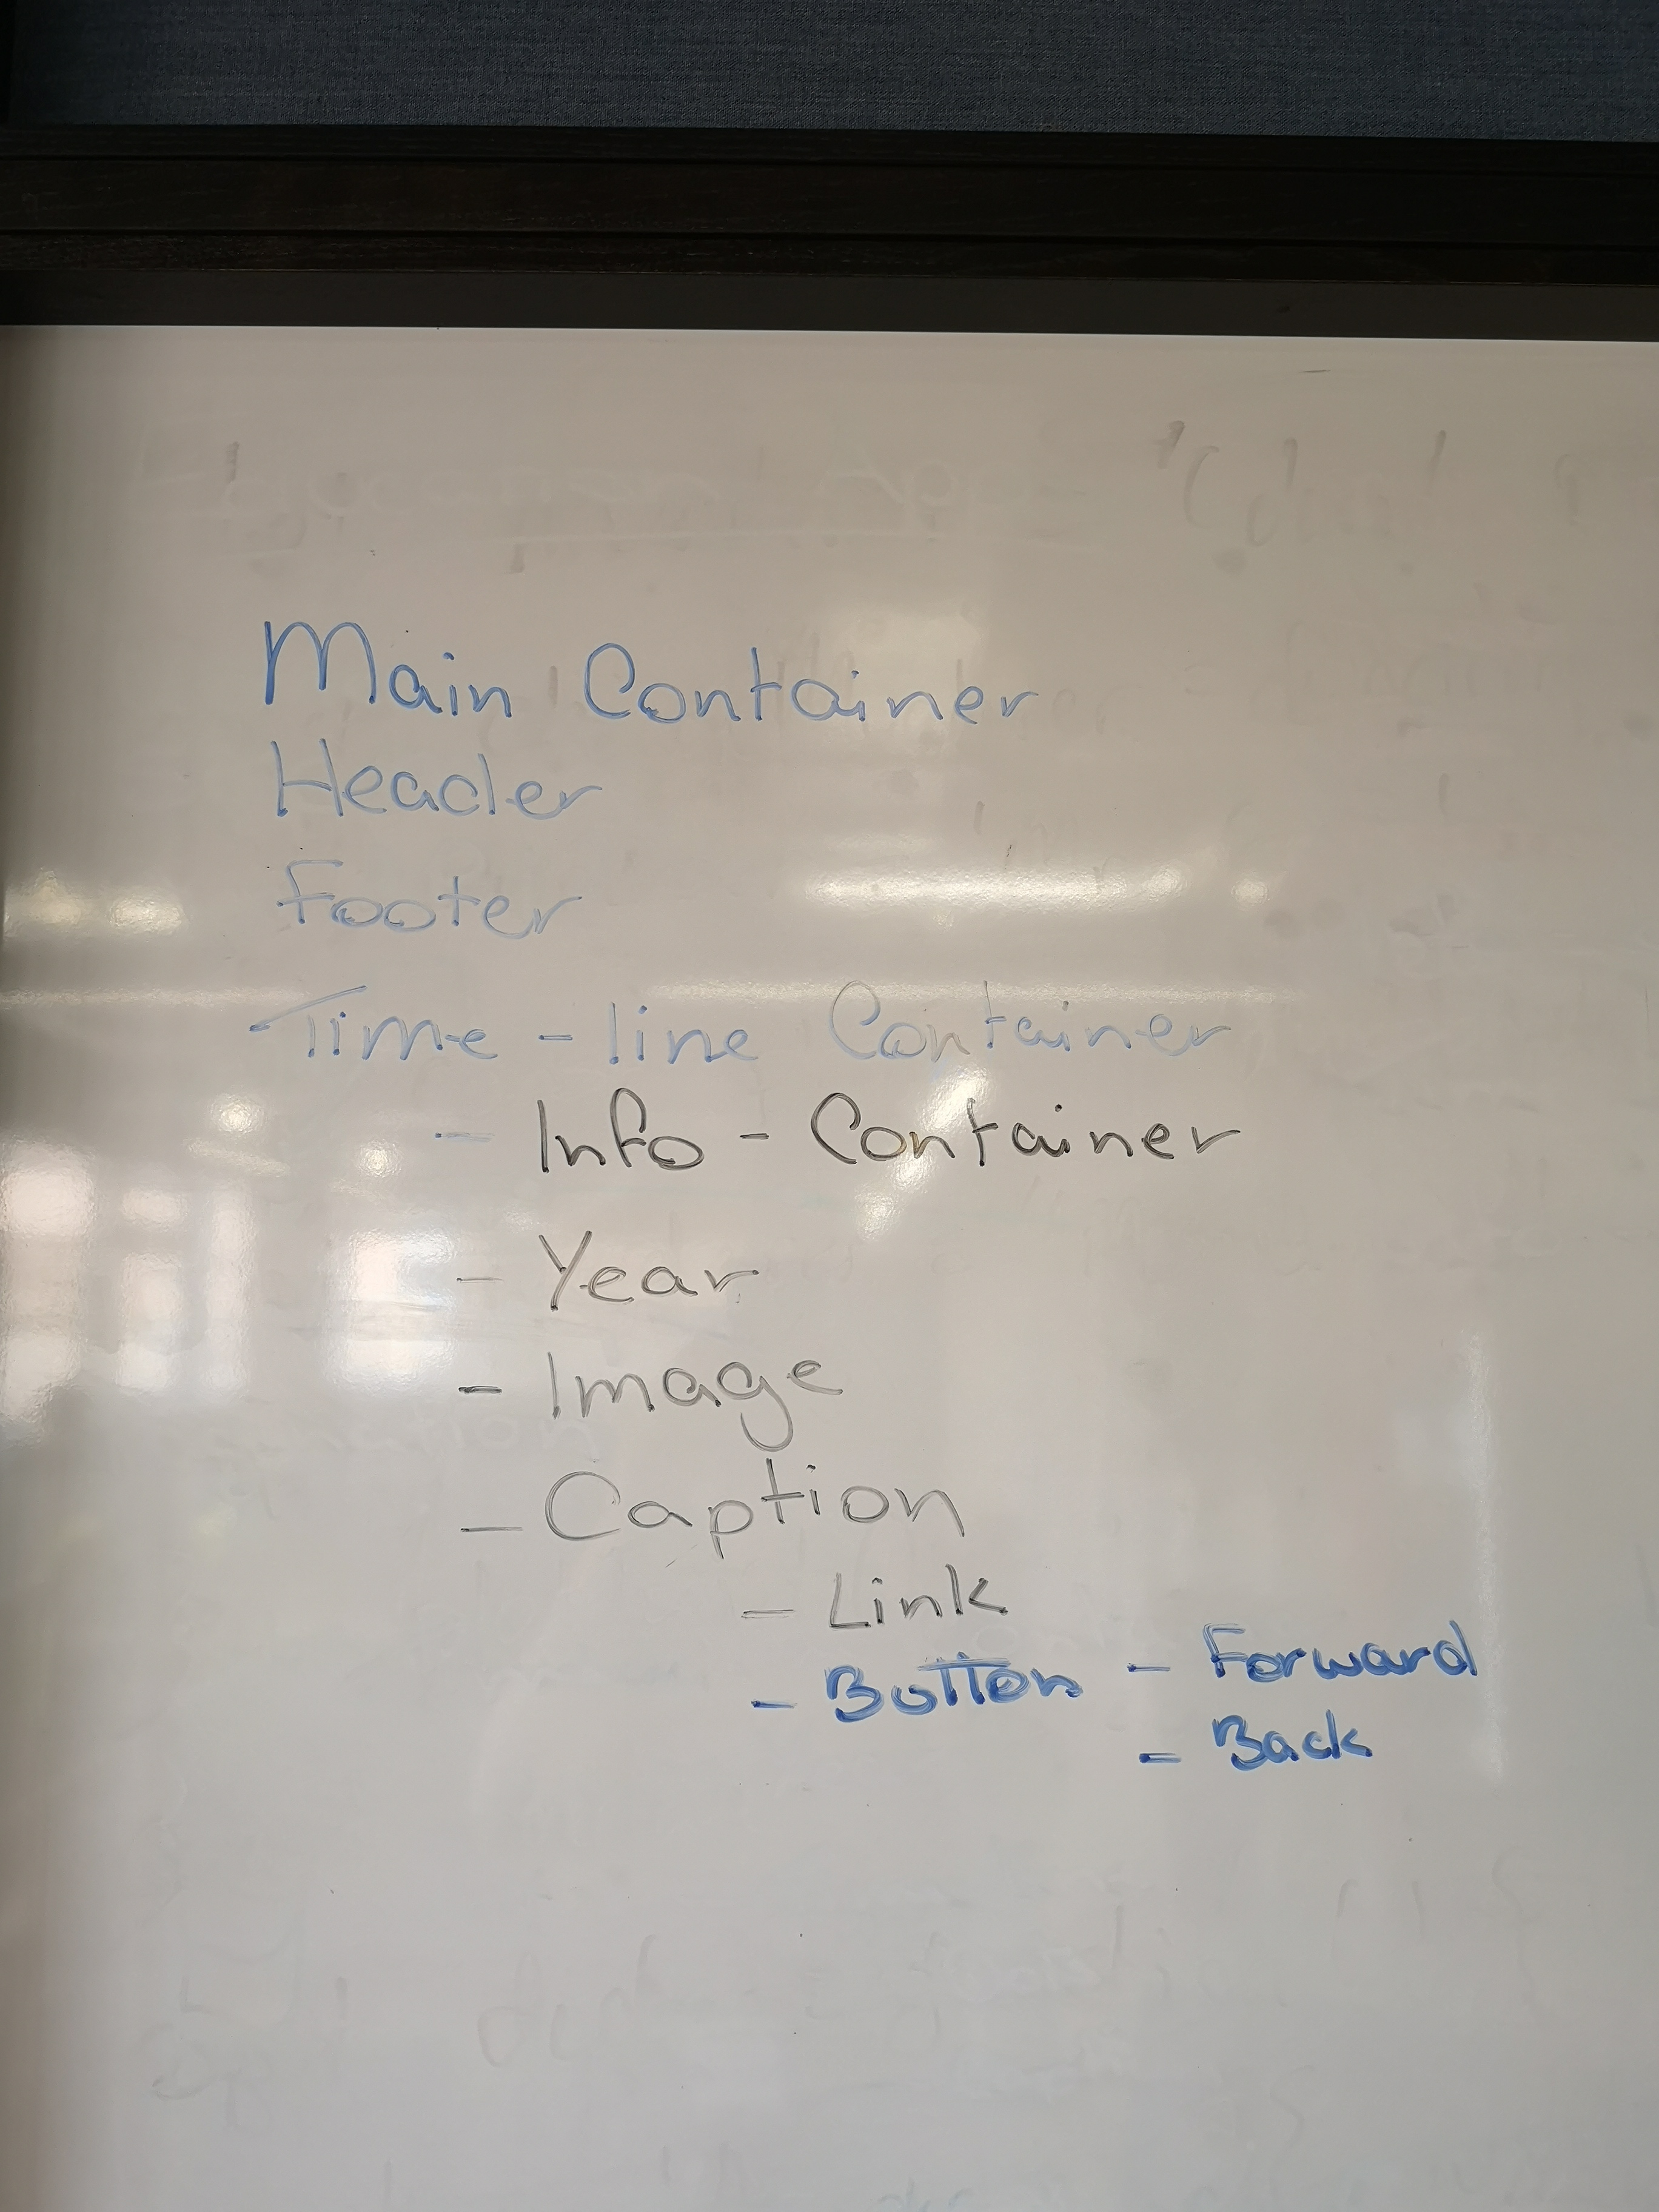 Main Container
Header
Footer
- Time - line Container
- Info - Container
- Year
- Image
- Caption
- Link
- Button - Forward
- Back